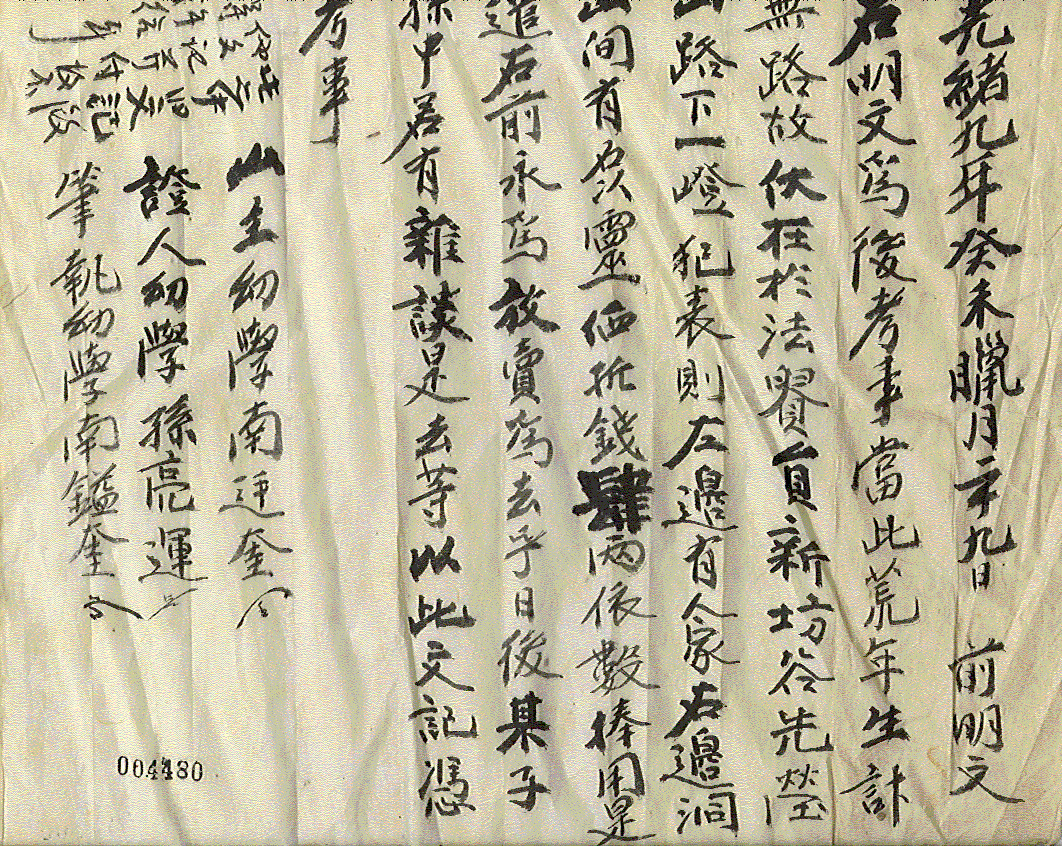 光緒九年癸未臘月二十九日 前明文
右明文爲後考事當此荒年生計
無路故伏在於法賢面新坊谷先塋
山路下一嶝犯表則左邊有人家右邊洞
山間有炭靈価折錢肆兩依數捧用是
遣右前永爲放賣爲去乎日後某子
孫中若有雜談是去等以此文記憑
考事
山主幼學南廷奎
證人幼學孫亮運
筆執幼學南鎰奎
004480